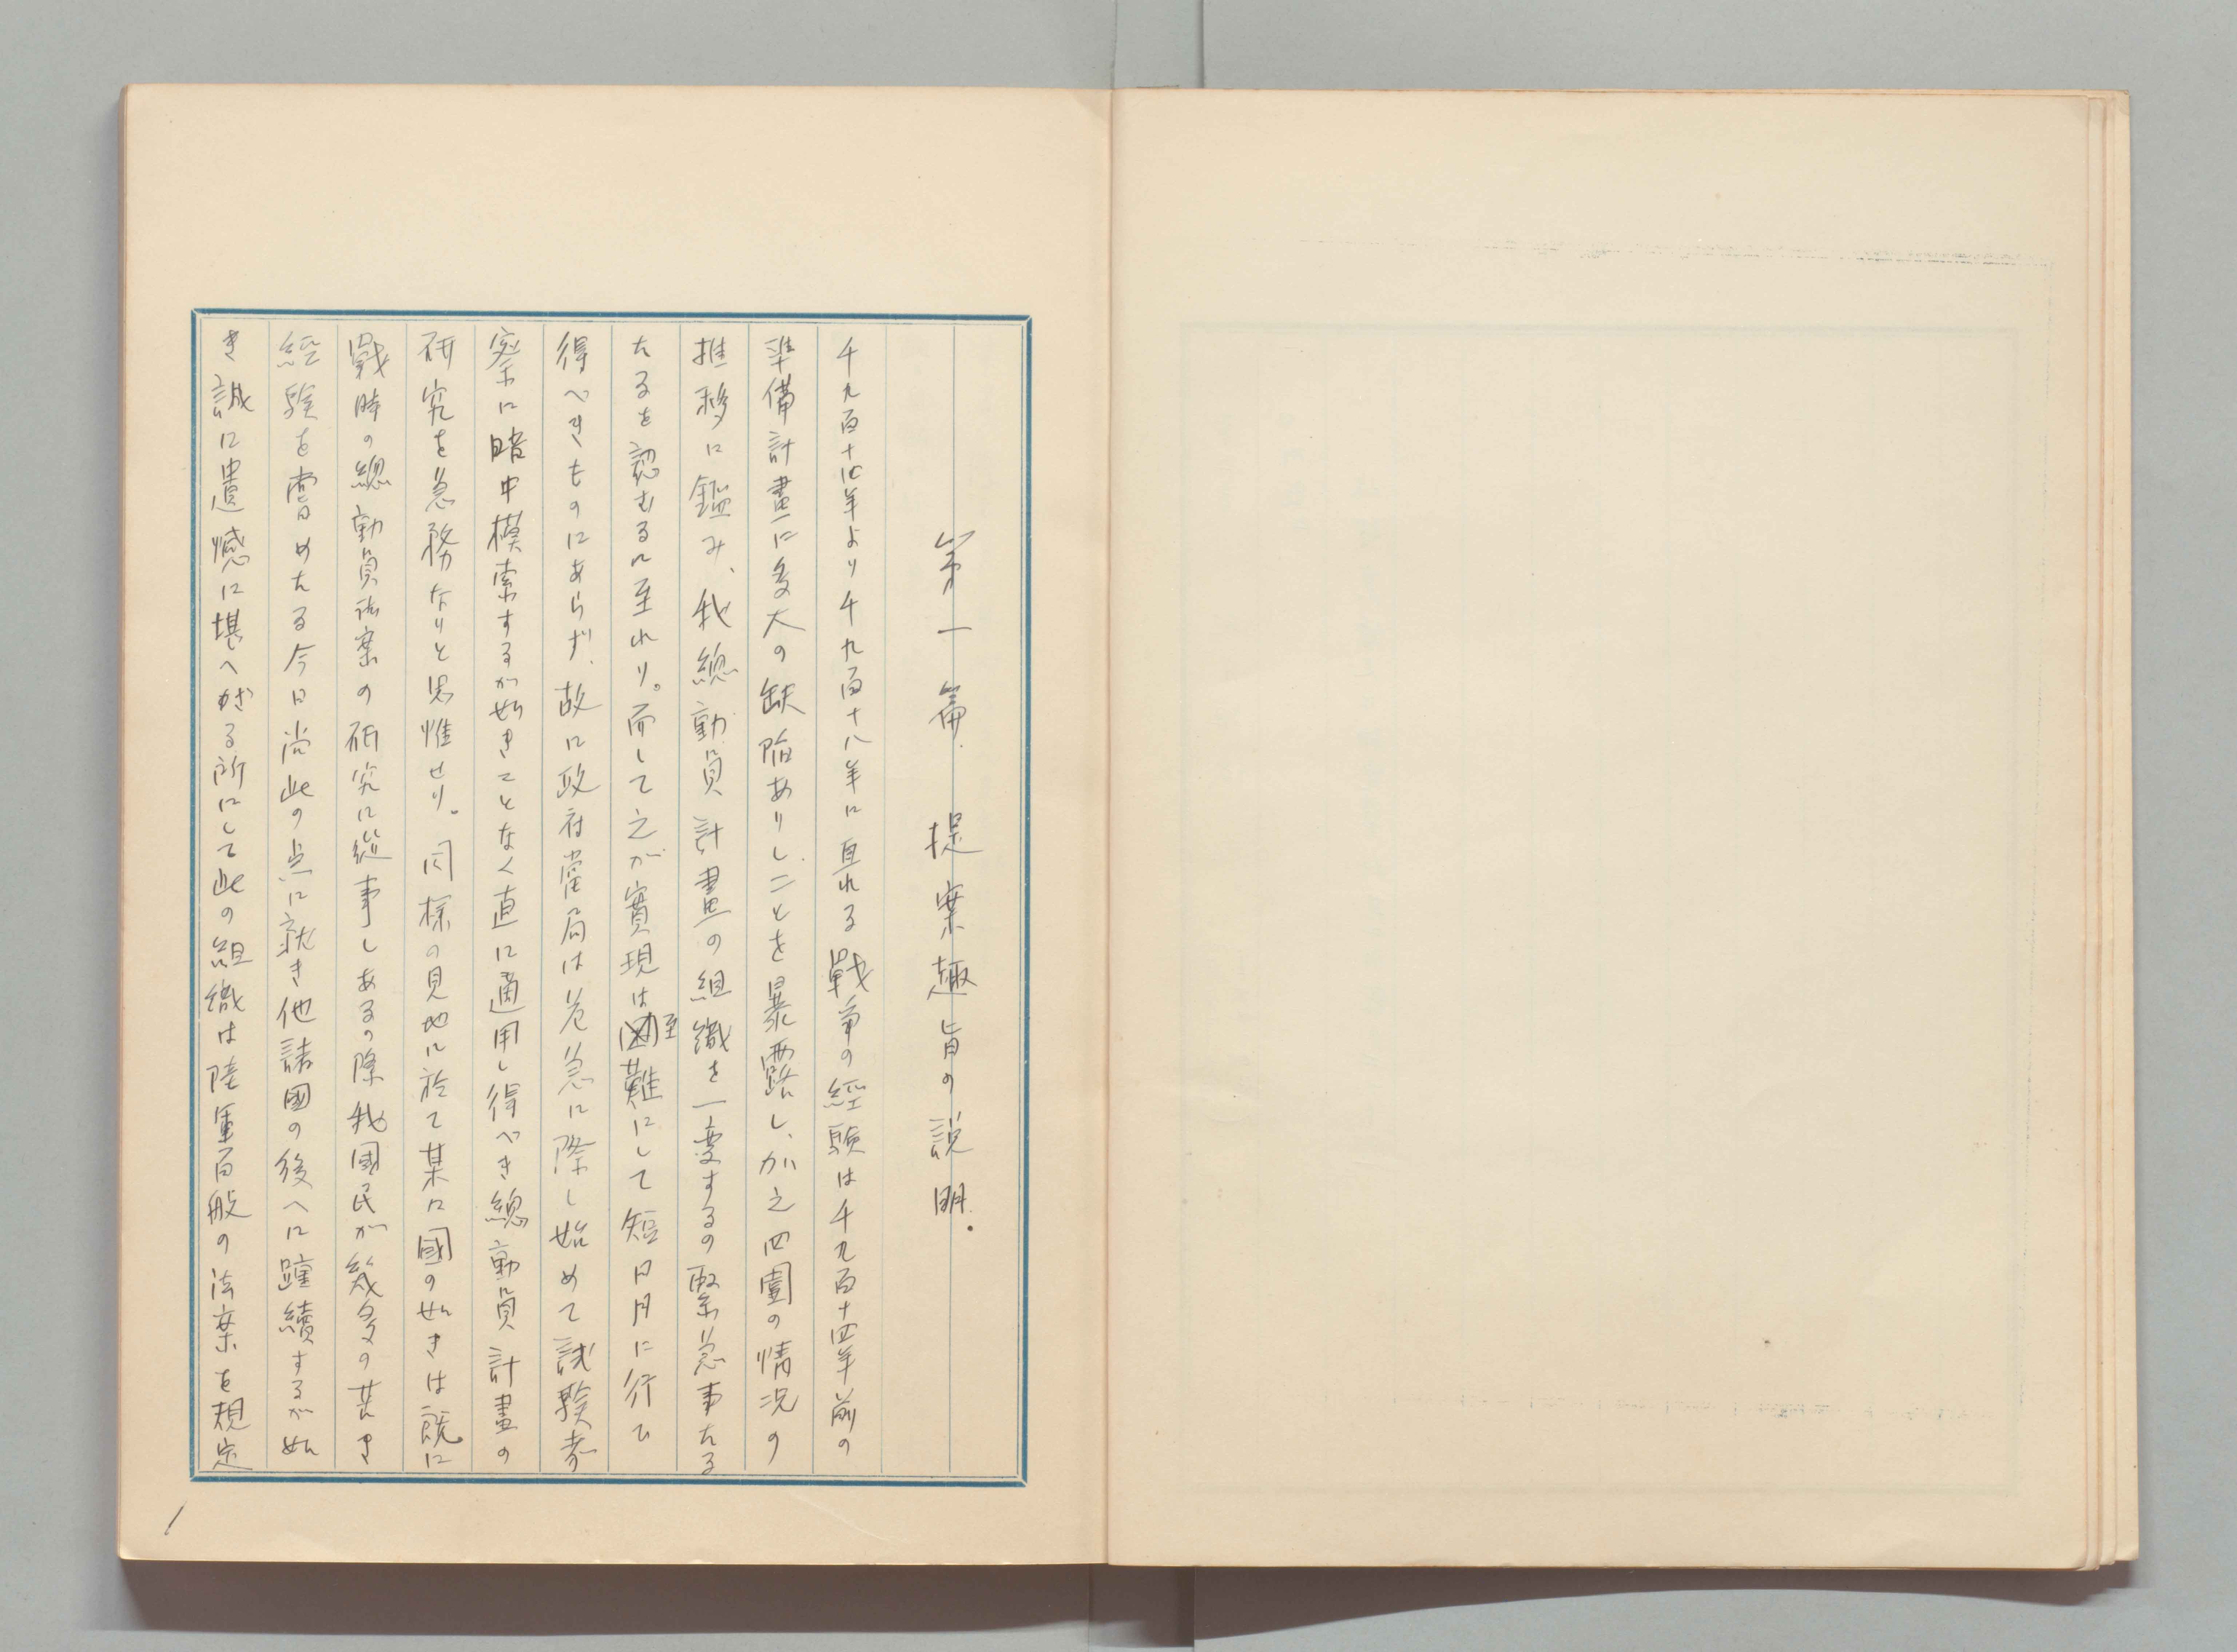 第一篇 提案趣旨の説明.
千九百十四年より千九百十八年に亘れる戦争の経験は千九百十四年前の
準備計畫に多大の缺陥ありしことを暴露し、加之四圍の情況の
推移に鑑み、我總動員計畫の組織を一変するの緊急事たる
たるを認むるに至れり。而して之が實現は至難にして短日月に行ひ
得べきものにあらず、故に政府當局は危急に際し始めて試験考
案に暗中模索するが如きことなく直に適用し得べき總動員計畫の
研究を急務なりと思惟せり。同様の見地に於て某々國の如きは既に
戦時の總動員法案の研究に従事しあるの際我國民が幾多の苦き
経験を嘗めたる今日尚此の点に就き他諸國の後へに踵續するが如
き誠に遺憾に堪へざる所にして此の組織は陸軍百般の法案を規定
1